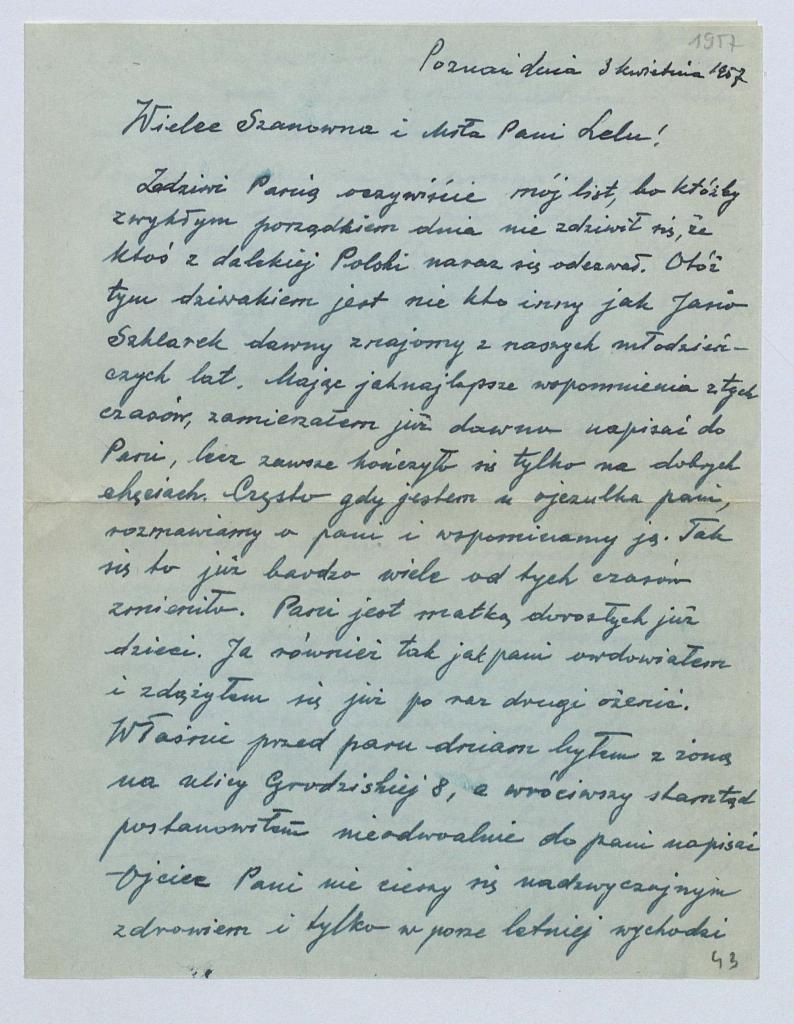 1957
Poznań dnia 3 kwietnia 1957
Wielce Szanowna i Miła Pani Lelu!
Zadziwi Panią oczywiście mój list, bo któżby
zwykłym porządkiem dnia nie zdziwił się, że
ktoś z dalekiej Polski naraz się odezwał. Otóż
tym dziwakiem jest nie kto inny jak Jasio
Szklarek dawny znajomy z naszych młodzień-
czych lat. Mając jaknajlepsze wspomnienia z tych
czasów, zamierzałem już dawno napisać do
Pani, lecz zawsze kończyło się tylko na dobrych
chęciach. Często gdy jestem u ojczulka pani,
rozmawiamy o pani i wspominamy ją. Tak
się to już bardzo wiele od tych czasów
zmieniło. Pani jest matką dorosłych już
dzieci. Ja również tak jak pani owdowiałem
i zdążyłem się już po raz drugi ożenić.
Właśnie przed paru dniam byłem z żoną
na ulicy Grodziskiej 8, a wróciwszy stamtąd
postanowiłem nieodwoalnie do pani napisać
Ojciec Pani nie cieszy się nadzwyczajnym
zdrowiem i tylko w porze letniej wychodzi
43